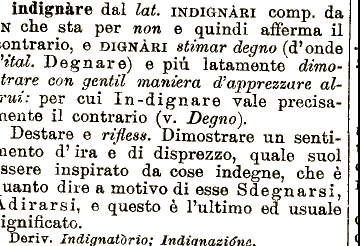 indignàre dal lat. INDIGNÀRI comp. da
N che sta per non e quindi afferma il
contrario, e DIGNÀRI stimar degno (d'onde
l'ital. Degnare) e piú latamente dimo-
trare con gentil maniera d'apprezzare al-
rui: per cui In-dignare vale precisa-
mente il contrario (v. Degno).
Destare e rifless. Dimostrare un senti-
mento d'ira e di disprezzo, quale suol
essere inspirato da cose indegne, che è
quanto dire a motivo di esse Sdegnarsi,
Adirarsi, e questo è l'ultimo ed usuale
significato.
Deriv. Indignatòrio; Indignazióne.